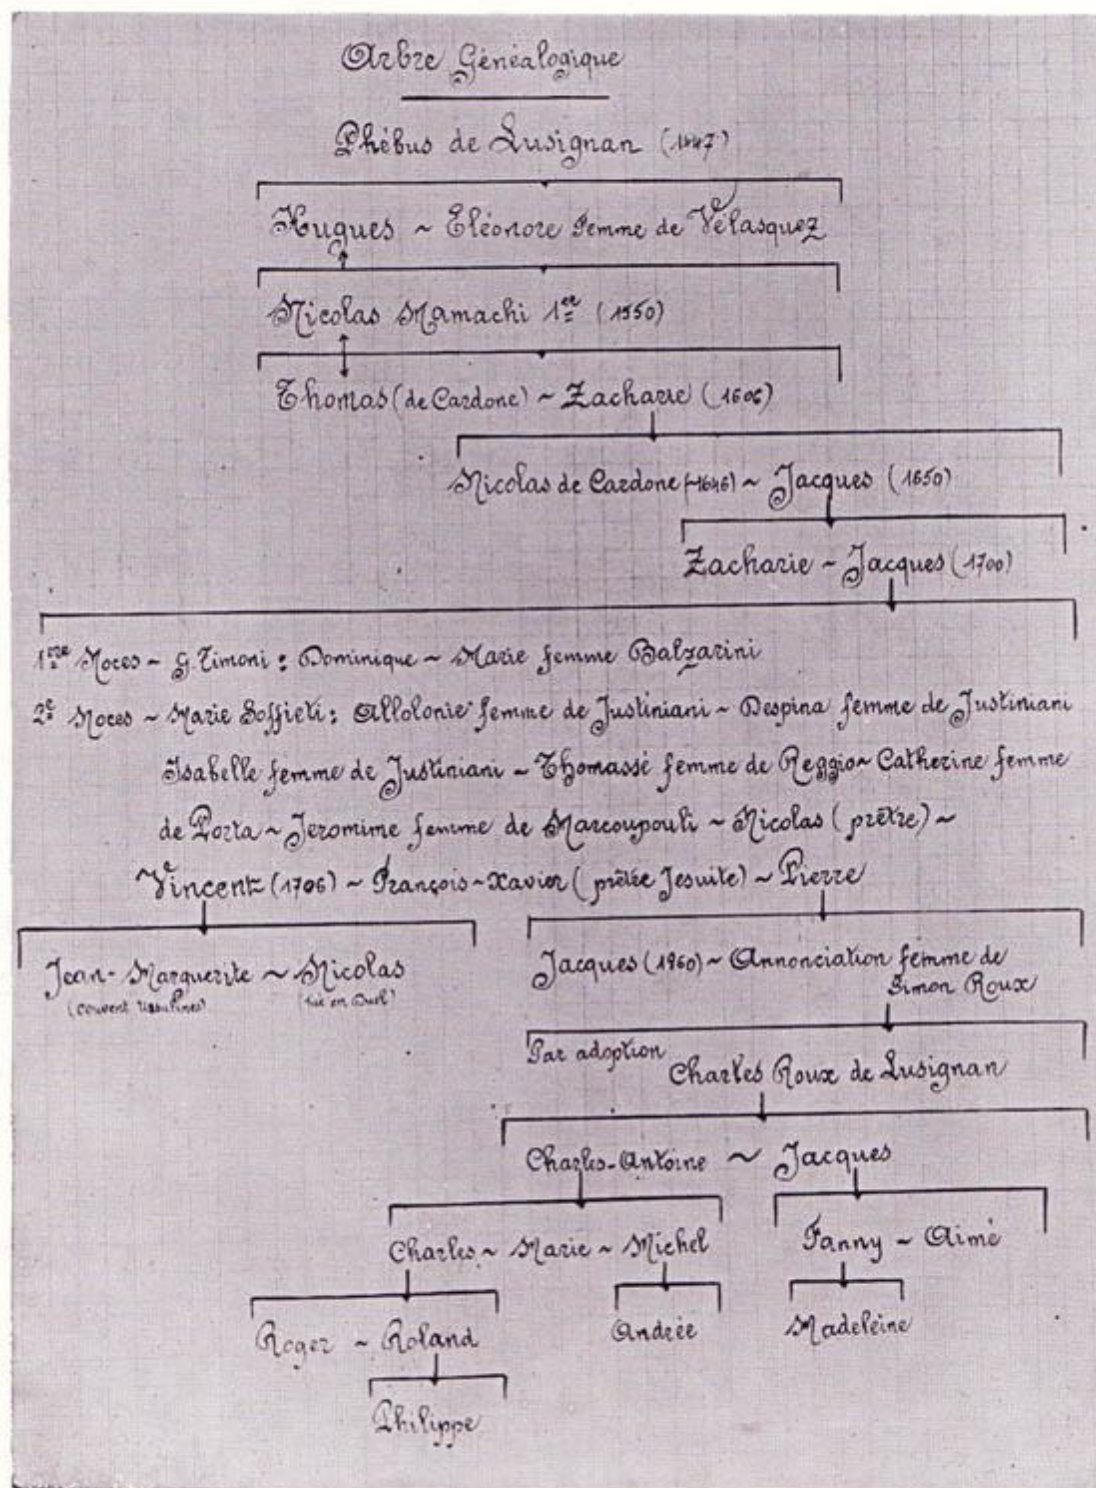 Arbre Généalogique
Phébus de Lusignan (1447)
Hugues ~ Eléonore Femme de Vélasquez
Nicolas Mamachi 1er (1550)
Thomas (de Cardone) ~ Zacharie (1606)
Nicolas de Cardone (1646) ~ Jacques (1650)
Zacharie ~ Jacques (1700)
1ere Noces ~ G. Timoni : Dominique ~ Marie femme Balzarini
2e Noces ~ Marie Soffieti : Allolonie femme de Justiniani ~ Despina femme de Justiniani
Isabelle femme de Justiniani ~ Thomassé femme de Reggio ~ Catherine femme
de Porta ~ Jeromime femme de Marcoupouli ~ Nicolas (prêtre) ~
Vincent (1706) ~ François-Xavier (prêtre Jesuite) ~ Pierre
Jean-Marguerite ~ Nicolas
(couvent Ursulines) (tué en Duel)
Jacques (1860) ~ Annonciation femme de
Simon Roux
Par adoption
Charles Roux de Lusignan
Charles-Antoine ~ Jacques
Charles ~ Marie ~ Michel
Fanny ~ Aimé
Roger ~ Roland
Andrée
Madeleine
Philippe